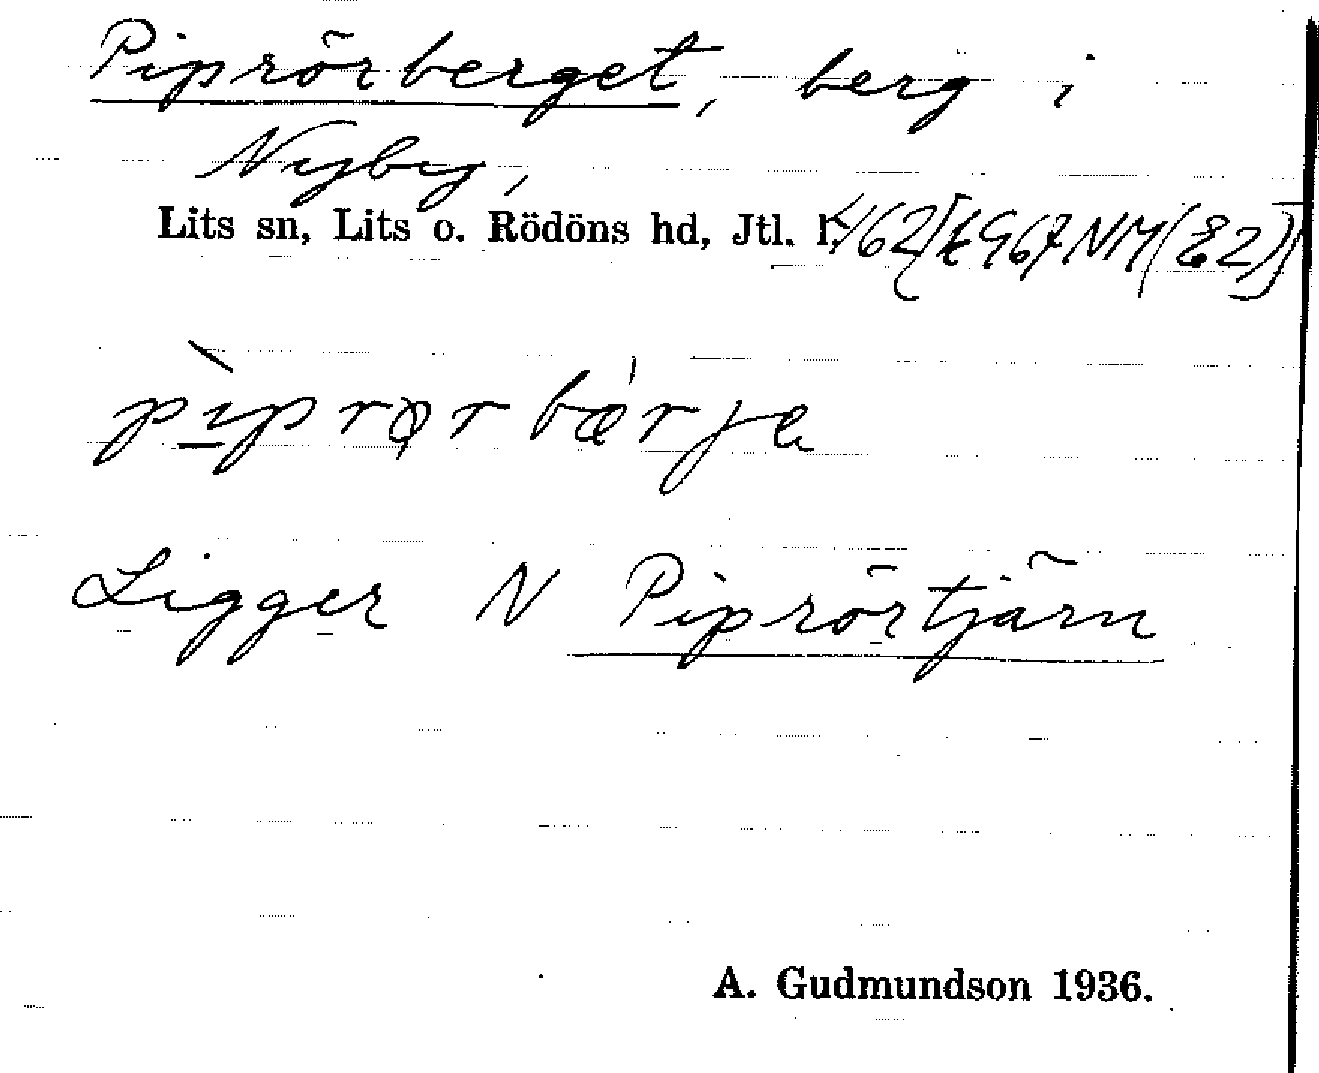 Piprörberget, berg i
Nyby,
Lits sn, Lits o. Rödöns hd, Jtl. l.
pìprørbærje
Ligger N Piprörtjärn
A. Gudmundson 1936.